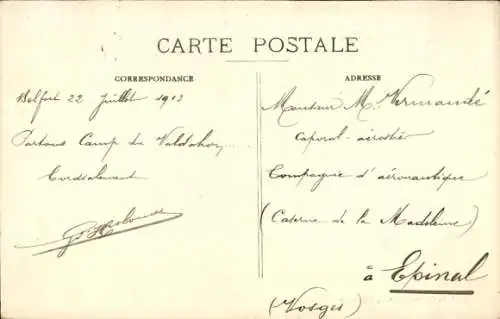 CARTE POSTALE
CORRESPONDANCE
ADRESSE
Belfort 22 Juillet 1913
Partons Camp de Valdahon
Cordialement
Monsieur M. Vermandé
Caporal-aérostier
Compagnie d'aéronautique
(Caserne de la Madeleine)
à Epinal
(Vosges)